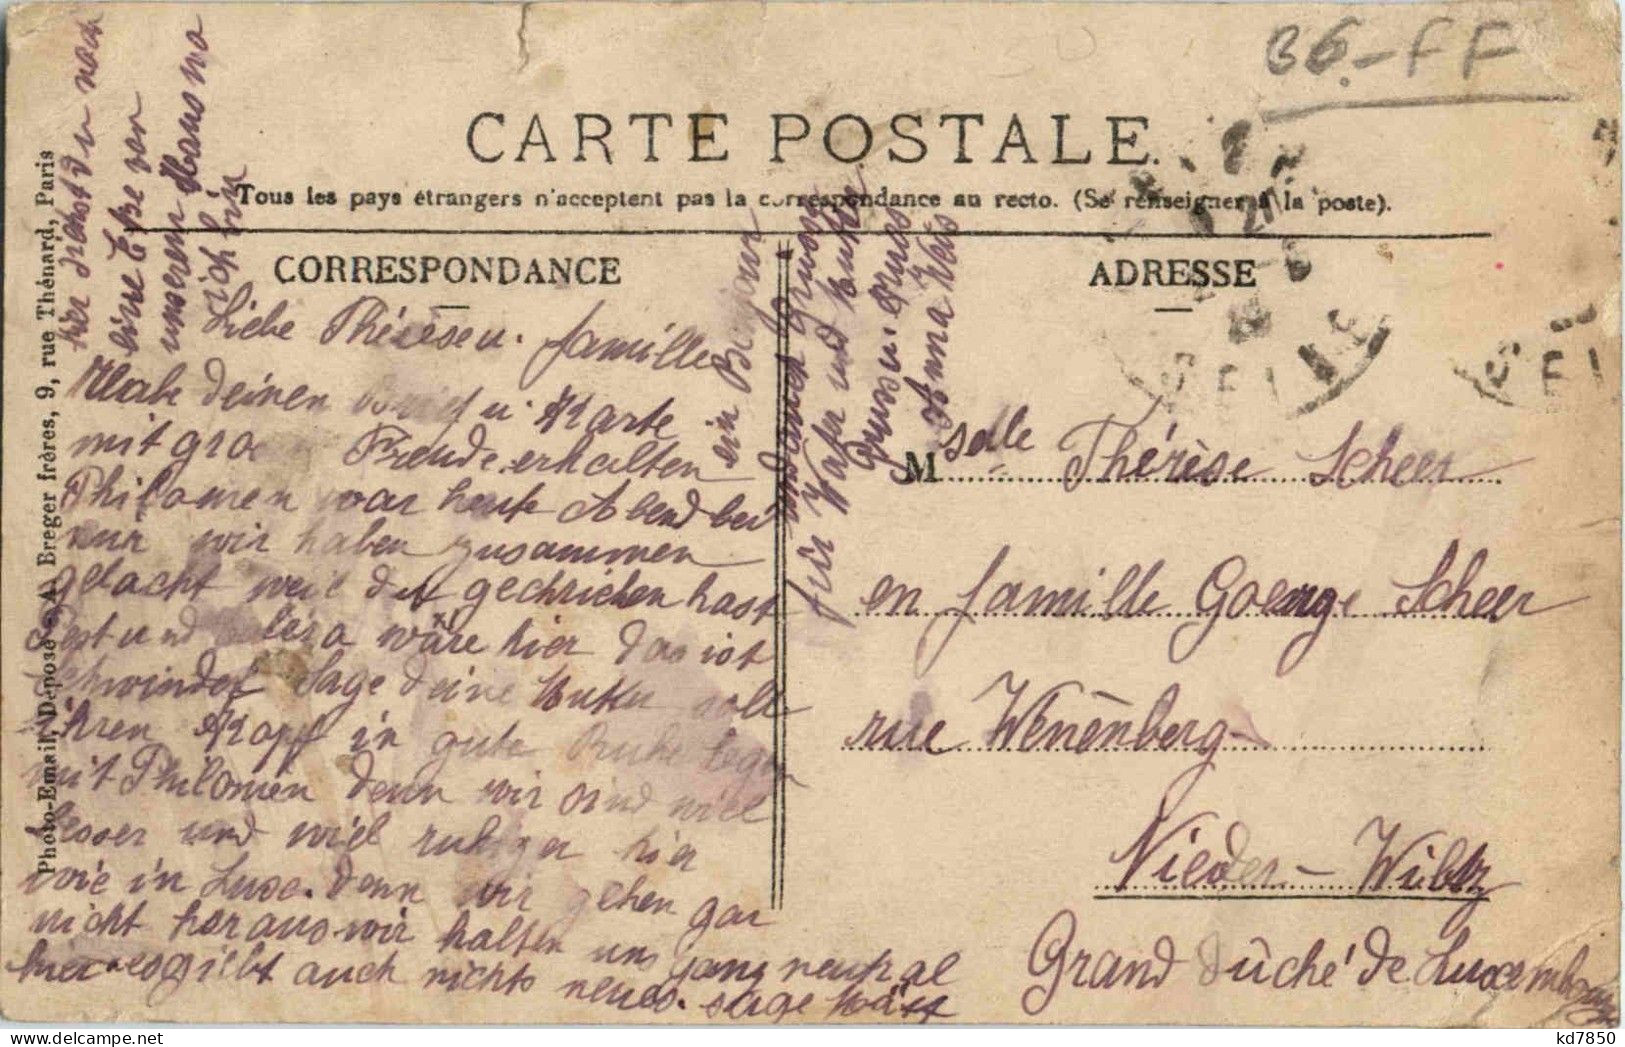 B6.-FF
CARTE POSTALE.
Tous les pays étrangers n'acceptent pas la correspondance au recto. (Se renseigner à la poste).
CORRESPONDANCE
ADRESSE
Photo-Email, Déposé A. Breger frères, 9, rue Thénard, Paris
Liebe Thérèse u. familie
Habe deinen Brief u. Karte
mit gro Freude erhalten
Philomen war heute Abend bei
mir wir haben zusammen
gelacht weil du gechrieben hast
Pest und wäre hier das ist
schwindel Sage deine Mutter soll
ihren Kopf in gute Ruhe legen
mit Philomen denn wir sind viel
besser und viel ruhiger hier
wie in Luxe. denn wir gehen gar
nicht heraus wir halten uns ganz neutral
hier es giebt auch nichts neues. sage
hier du nach
eine von
unserem Hans
ich bin
ein Bonjour
für Vater und Mutter
Gruss u. Kuss
Anna
Mselle Thérèse Scheer
en famille George Scheer
rue Wenènberg
Nieder-Wiltz
Grand Dûché de Luxembourg
kd7850